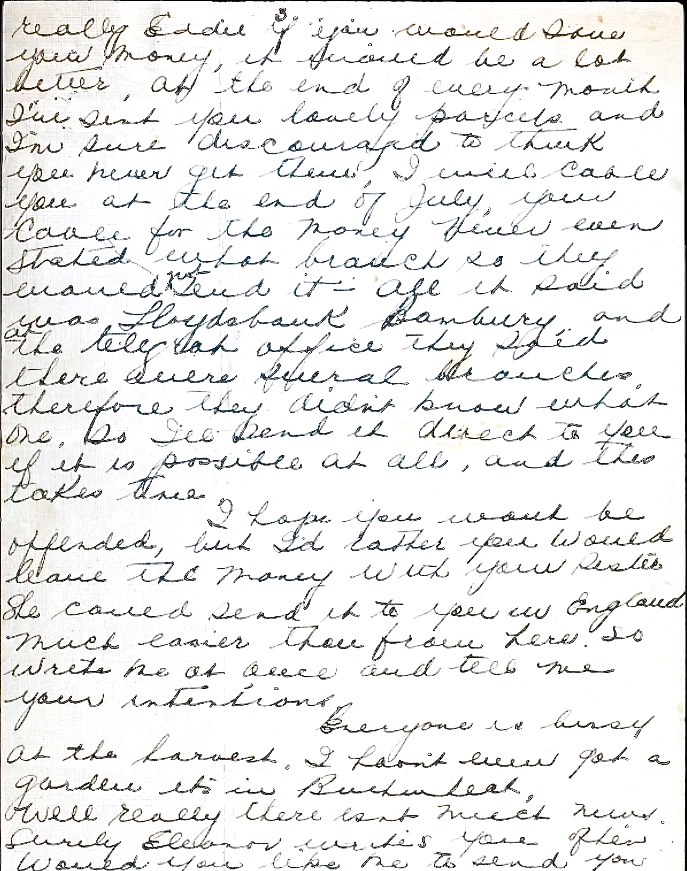 3.
really Eddie if you would save
your money, it would be a lot
better, at the end of every month
I've sent you lovely parcels and
I'm sure discouraged to think
you never get them, I will cable
you at the end of July, your
Cable for the money never even
stated what branch so they
would not send it - all it said
was Lloydsbank Banbury, and
at the telegraph office they said
there were several branches,
therefore they didnt know what
one, so I'll send it direct to you
if it is possible at all, and this
takes time.
I hope you wont be
offended, but I'd rather you would
leave the money with your sister
She could send it to you in England
much easier than from here. So
write me at once and tell me
your intentions.
Everyone is busy
at the harvest. I havnt even got a
garden its in Buckwheat.
Well really there isnt much news.
Surely Eleanor writes you often
Would you like me to send you